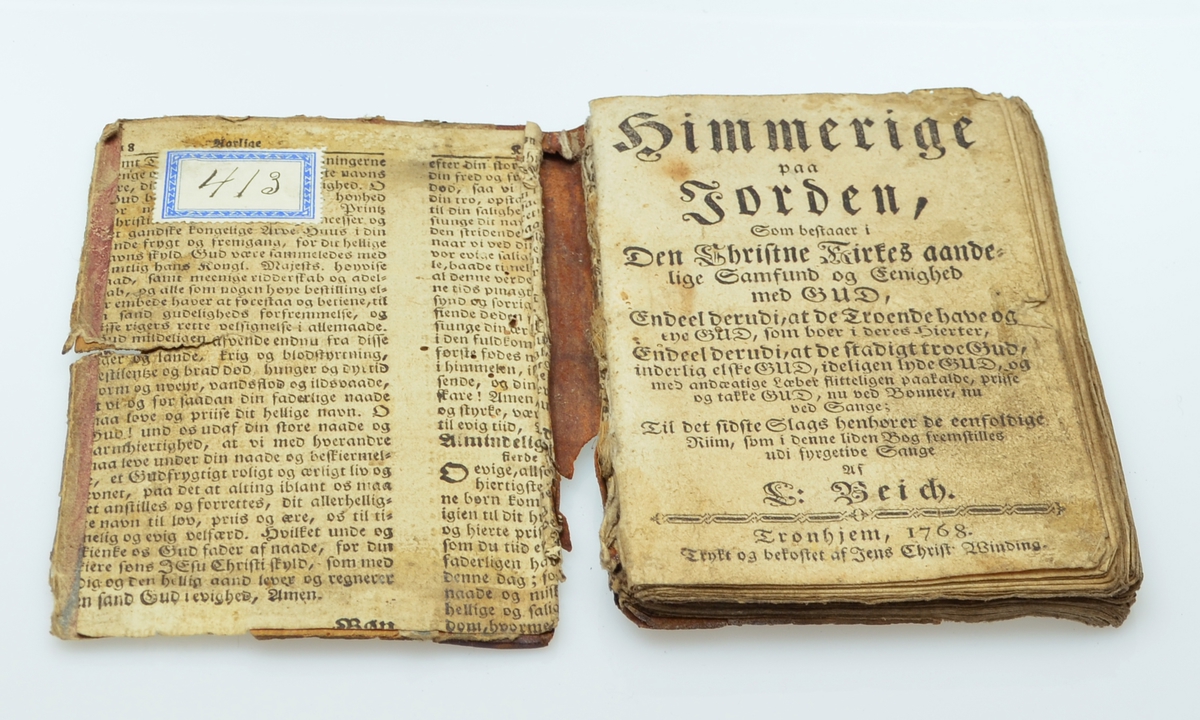 18 Aarlige
413
ningerne
te navns
ighed. O
høyhed
Printz
cesser og
gandske kongelige Arve-Huus i din
nde frygt og fremgang, for dit hellige
navns skyld Gud være sammeledes med
samtlig hans Kongl. Majests. høyvise
raad, samt meenige ridderskab og adel-
skab, og alle som nogen høye bestilling el-
er embede haver at forestaa og betiene, til
sand gudeligheds forfremmelse, og
disse rigers rette velsignelse i allemaade.
Gud mildeligen afvende endnu fra disse
riger og lande, krig og blodstyrtning,
pestilentze og brad død, hunger og dyr tid
storm og uveyr, vandflod og ildsvaade,
at vi og for saadan din faderlige naade
maa love og priise dit hellige navn. O
Gud! und os udaf din store naade og
barmhiertighed, at vi med hverandre
maa leve under din naade og beskiermel-
se, et Gudfrygtigt roligt og ærligt liv og
levnet, paa det at alting iblant os maa
let anstilles og forrettes, dit allerhellig-
te navn til lov, priis og ære, os til ti-
melig og evig velfærd. Hvilket unde og
skienke os Gud fader af naade, for din
kiere søns JEsu Christi skyld, som med
dig og den hellig aand lever og regnerer
en sand Gud i evighed, Amen.
efter din stor
din fred og
død, saa vi
din tro, opsta
til din salighe
siunge dit na
den stridende
naar vi ved di
vor evige salig
le, baade timel
at denne verde
ne tids pinagt
synd og sorrig
siende deden
siunge din
i den fuldkom
første fødes
i himmelen, i
sende, og din
skare! Amen,
og styrke, vær
til evig tiid,
Almindelig
fierde
O evige, allso
hiertigste
ne børn kom
igien til dit
og hierte pris
som du tid ef
faderligen ha
denne dag; so
naade og misk
hellige og salig
dom, hvorme
Himmerige
paa
Jorden,
Som bestaaer i
Den Christne Kirkes aande-
lige Samfund og Eenighed
med GUD,
Endeel derudi, at de Troende have og
eye GUD, som boer i deres Hierter,
Endeel derudi, at de stadigt troe Gud,
inderlig elske GUD, ideligen lyde GUD, og
med andægtige Læber flitteligen paakalde, priise
og takke GUD, nu ved Bønner, nu
ved Sange;
Til det sidste Slags henhører de eenfoldige
Riim, som i denne liden Bog fremstilles
udi fyrgetive Sange
Af
L: Beich.
Tronhjem, 1768.
Trykt og bekostet af Jens Christ. Winding.